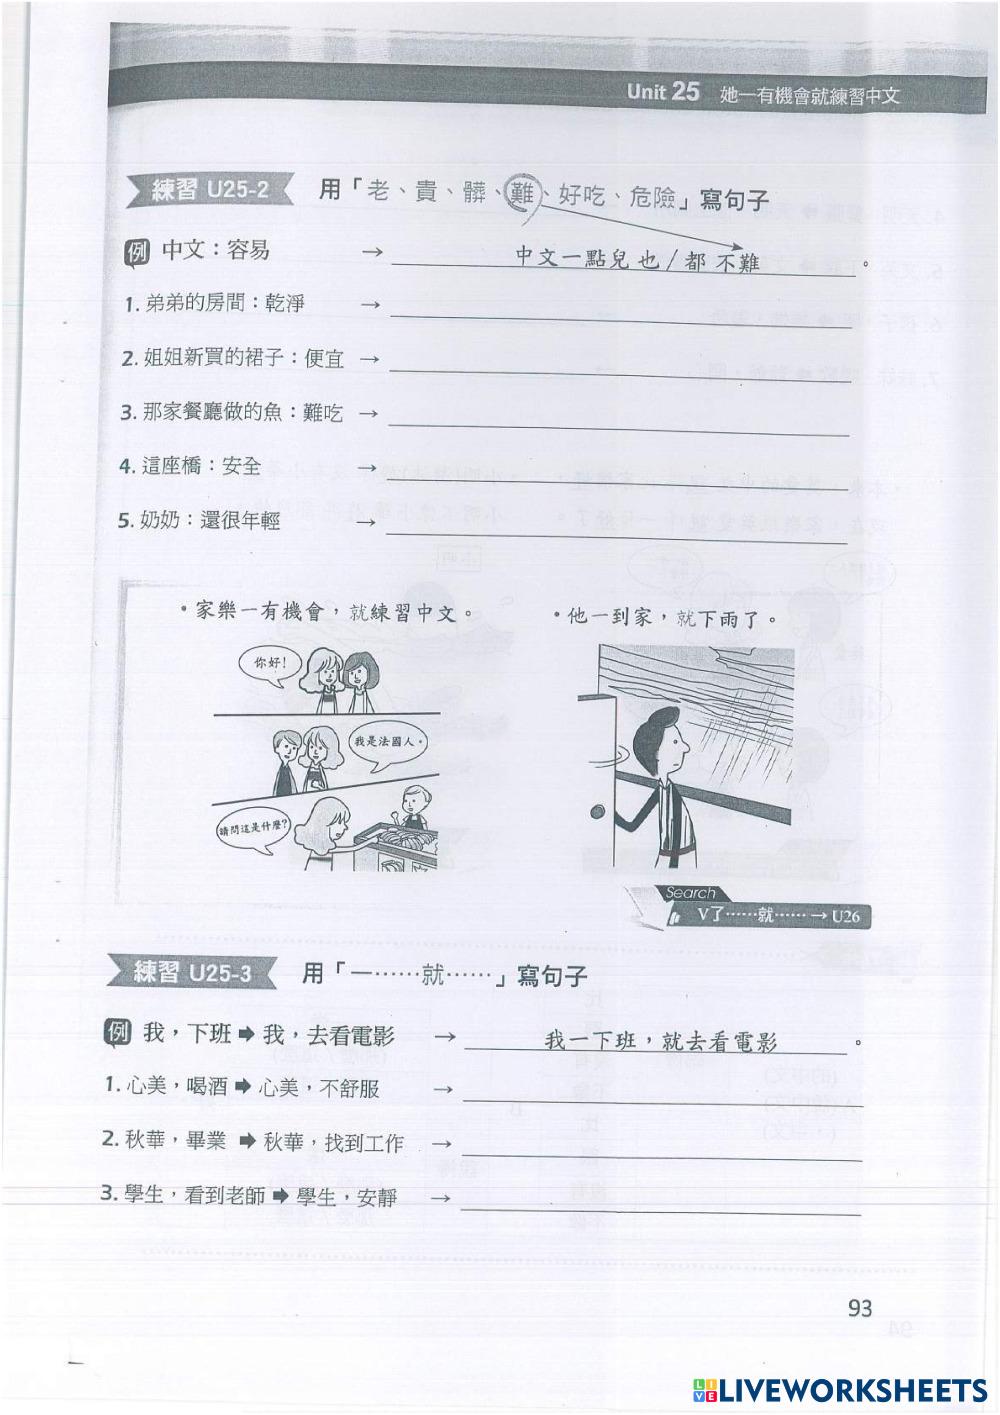 Unit 25 她一有機會就練習中文
練習 U25-2 用「老、貴、髒、難、好吃、危險」寫句子
例 中文：容易 → 中文一點兒也/都不難。
1. 弟弟的房間：乾淨 →
2. 姐姐新買的裙子：便宜 →
3. 那家餐廳做的魚：難吃 →
4. 這座橋：安全 →
5. 奶奶：還很年輕 →
•家樂一有機會，就練習中文。
•他一到家，就下雨了。
你好！
我是法國人。
請問這是什麼？
Search
V了……就…… → U26
練習 U25-3 用「一……就……」寫句子
例 我，下班➡我，去看電影 → 我一下班，就去看電影。
1. 心美，喝酒➡心美，不舒服 →
2. 秋華，畢業➡秋華，找到工作 →
3. 學生，看到老師➡學生，安靜 →
93
LIVEWORKSHEETS